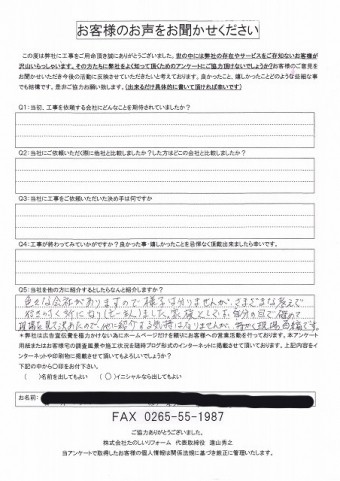 お客様のお声をお聞かせください
この度は弊社に工事をご用命頂き誠にありがとうございました。世の中には弊社の存在やサービスをご存知ないお客様が
沢山いらっしゃいます。その方たちに弊社をよく知って頂くためのアンケートにご協力頂けないでしょうか?お客様のご意見を
お聞かせいただき今後の活動に反映させていただきたいと考えております。良かったこと、嬉しかったことどのような些細な事
でも結構です。是非ご協力お願い致します。(出来るだけ具体的に書いて頂ければ幸いです)
Q1:当初、工事を依頼する会社にどんなことを期待されていましたか?
Q2:当社にご依頼いただく際に他社と比較しましたか?した方はどこの会社と比較しましたか?
Q3:当社に工事をご依頼いただいた決め手は何ですか
Q4:工事が終わってみていかがですか?良かった事・嬉しかったことを忌憚なく頂戴出来ましたら幸いです。
Q5:当社を他の方に紹介するとしたらなんと紹介しますか?
色々な会社がありますので様子は分りませんが、さまざまな考えで
現場を見て決めたので、他に紹介する気持はなりませんが、
※弊社は広告宣伝費を極力かけないためにホームページだけを頼りにお客様への営業活動を行っております。本アンケート
用紙またはお客様宅の調査風景や施工状況を随時ブログ形式のインターネットに掲載させて頂いております。上記内容をイ
ンターネットや印刷物に掲載させて頂いてもよろしいでしょうか?
下記の中から○印をお付け下さい。
( )名前を出してもよい (○)イニシャルなら出してもよい
お名前:
FAX 0265-55-1987
ご協力ありがとうございました。
株式会社たのしいリフォーム 代表取締役 蓬山秀之
当アンケートで取得したお客様の個人情報は関係法規に基づき厳正に管理いたします。